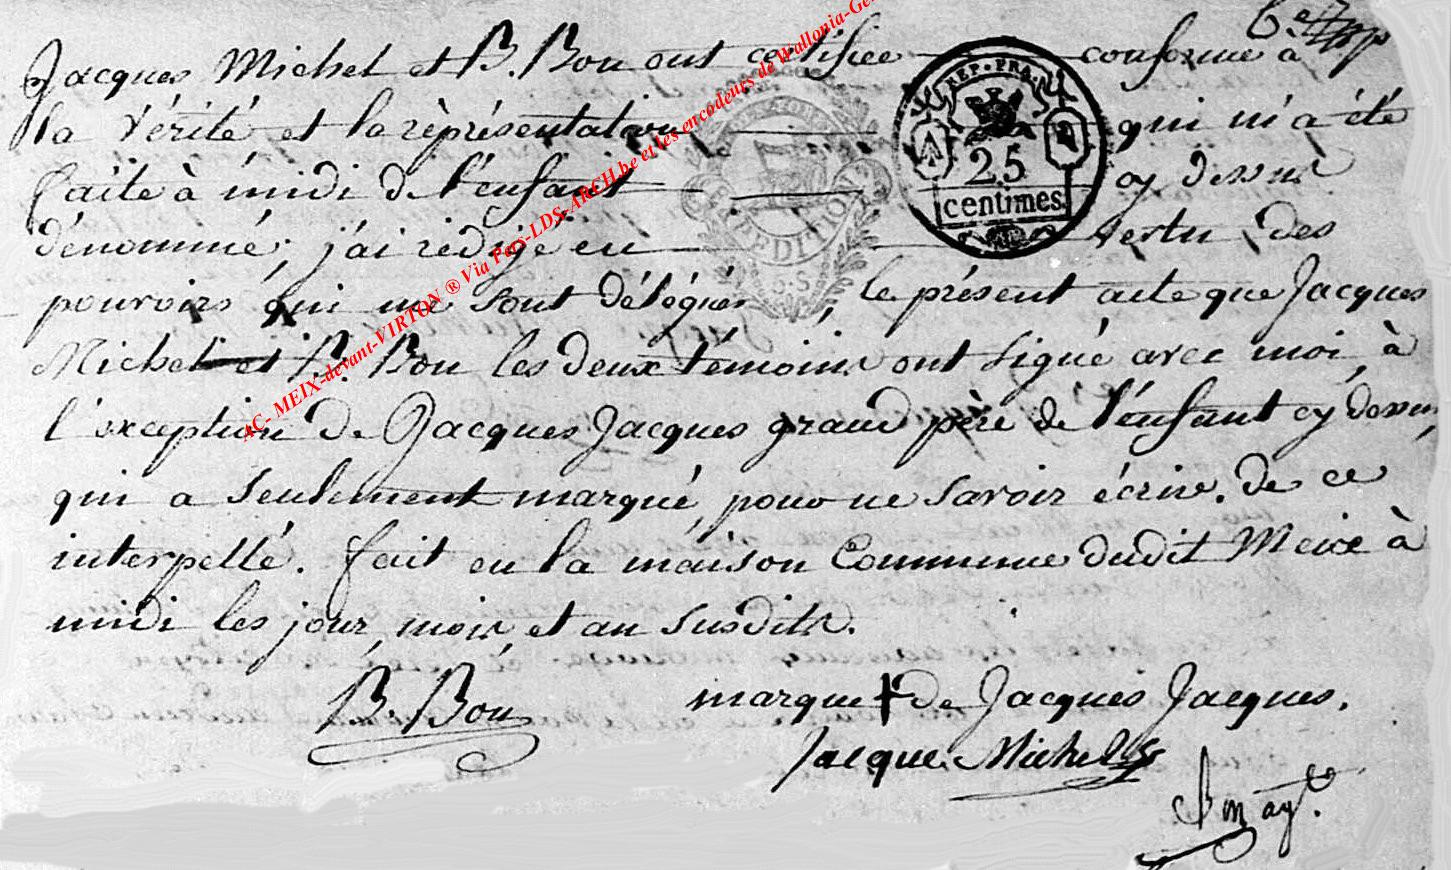 Jacques Michel et B. Bon ont certifiée conforme à
REP. FRA.
la vérité et la réprésentation qui m'a été
25
faite à midi de l'enfant cy dessus
centimes
EXPEDITIONS
dénommé, j'ai rédigé en vertu des
pouvoirs qui me sont délégués, le présent acte que Jacques
Michel et B. Bon les deux témoins ont signé avec moi, à
l'exception de Jacques Jacques grand père de l'enfant cy dessus,
qui a seulement marqué, pour ne savoir écrire. de ce
interpellé. fait en la maison Commune dudit Meix à
midi les jour, mois et an susdits.
B. Bon marque + de Jacques Jacques.
Jacque Michel
AC- MEIX-devant-VIRTON ® Via Pers-LDS-ARCH.be et les encodeurs de Wallonia-Ge